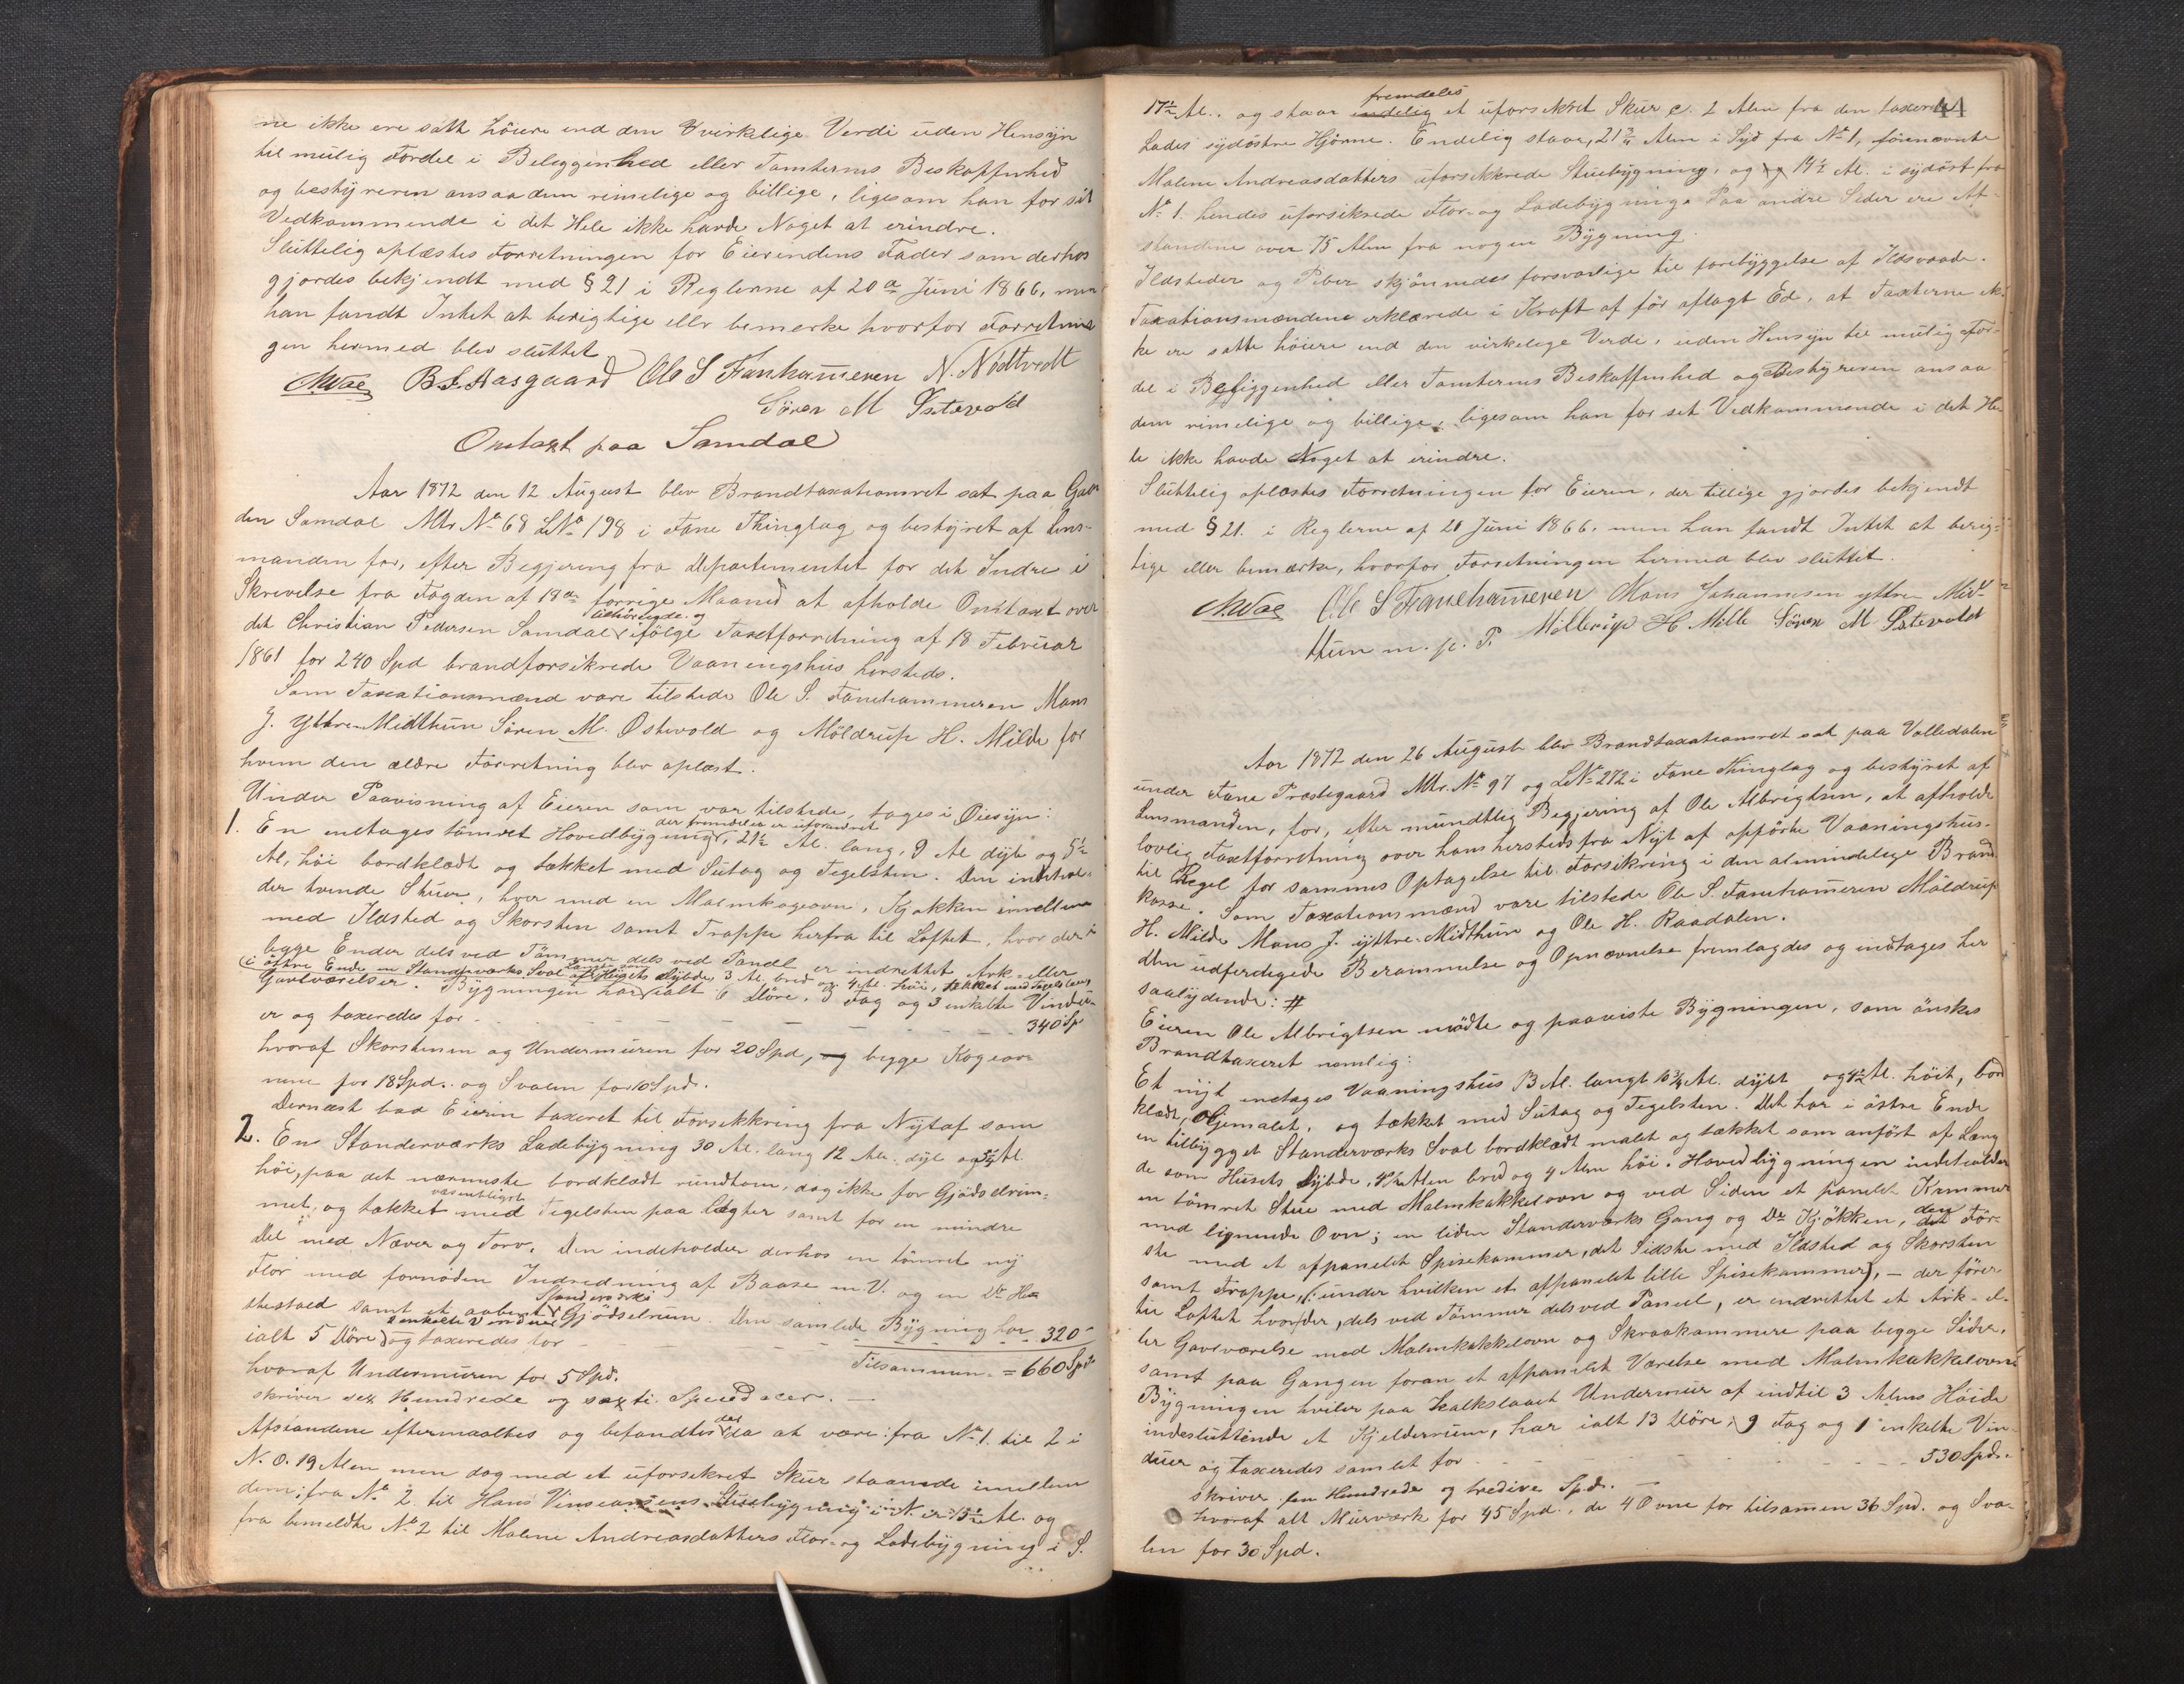 ne ikke ere satte høiere end den virkelige Verdi uden Hensyn
til mulig Fordel i Beleggenhed eller Tomternes Beskaffenhed
og bestyreren ansaa dem rimelige og billige, ligesom han for sit
Vedkommende i det Hele ikke havde Noget at erindre.
Sluttelig oplæstes Forretningen for Eierindens Fader som derhos
gjordes bekjendt med § 21 i Reglerne af 20de Juni 1866, men
han fandt Intet at berigtige eller bemerke hvorfor Forretnin-
gen hermed blev sluttet
B. L. Aasgaard Ole S Fanehammeren N. Nödtvedt
Sören M Östevold
Omtaxt paa Samdal
Aar 1872 den 12 August blev Brandtaxationsret sat paa Gaar
den Samdal Mtr No 68 LNo 198 i Fane Thinglag og bestyret af Lens-
manden for, efter Begjering fra Departementet for det Indre i
Skrivelse fra Fogden af 18de forrige Maaned at afholde Omtaxt over
tilhørigde og
det Christian Pedersen Samdal ifølge Taxtforretning af 18 Februar
1861 for 240 Spd brandforsikrede Vaaningshus hersteds.
Som Taxationsmænd vare tilstede Ole S. Fanehammeren Mons
J. Yttre-Midthun Sören M. Östevold og Möldrup H. Milde for
hvem den ældre Forretning blev oplæst.
Under Paavisning af Eieren som var tilstede, tages i Øiesyn:
der fremdeles er uforandret
1. En entages tømret Hovedbygning, 21½ Al. lang, 9 Al dyb og 5½
Al, høi bordklædt og tækket med Sutag og Tegelsten. Den indehol-
der tvende Stuer, hver med en Malmkogeovn, Kjøkken imellem
med Ildsted og Skorsten samt Trappe herfra til Loftet, hvor der i
begge Ender dels ved Tømmer dels ved Panel er indrettet Ark- eller
i østre Ende en Standerværks Sval af Husets Dybde, 3 Al. bred og 4 Al. høi, tækket med Tegelsten,
Gavlværelser. Bygningen har ialt 6 Döre, 3 Fag og 3 enkelte Vindu-
er og taxeredes for - - - 340 Sp
hvoraf Skorstenen og Undermuren for 20 Spd, og begge Kogeov-
nene for 18 Spd. og Svalen for 10 Spd.
Dernæst bad Eieren taxeret til Forsikkring fra Nytaf som
2. En Standerværks Ladebygning 30 Al. lang 12 Al. dyb og 5¼ Al.
høi, paa det nærmeste bordklædt rundtom, dog ikke for Gjødselrum-
væsentligst
met, og tækket med Tegelsten paa Lægter samt for en mindre
Del med Næver og Torv. Den indeholder derhos en tømret ny
Flor med fornøden Indredning af Baase m. V. og en Do He-
Standerværks
stestald samt et aabent Gjødselrum. Den samlede Bygning har
2 enkelte Vinduer
ialt 5 Döre og taxeredes for - - - 320
hvoraf Undermuren for 5 Spd. Tilsammen = 660 Spd
skriver sex Hundrede og sexti Speciedaler. —
der
Afstandene eftermaaltes og befandtes da at være: fra No 1. til 2 i
N. O. 19 Alen men dog med et uforsikret Skur staaende imellem
dem; fra No 2 til Hans Stuebygning i N. er 15½ Al. og
fra bemeldte No 2 til Malene Andreasdatters Flor- og Ladebygning i S.
44
fremdeles
17½ Al.. og staar endelig et uforsikret Skur c. 2 Alen fra den taxerede
Lades sydöstre Hjørne. Endelig staar, 21¾ Alen i Syd fra No 1, førnævnte
Malene Andreasdatters uforsikrede Stuebygning, og 14½ Al. i sydöst fra
No 1. hendes uforsikrede Flor- og Ladebygning. Paa andre Sider ere Af-
standene over 75 Alen fra nogen Bygning.
Ildsteder og Piber skjønnedes forsvarlige til forebyggelse af Ildsvaade.
Taxationsmændene erklærede i Kraft af før aflagt Ed, at Taxterne ik-
ke ere satte høiere end den virkelige Verdi, uden Hensyn til mulig For-
del i Beliggenhed eller Tomternes Beskaffenhed og Bestyreren ansaa
dem rimelige og billige, ligesom han for set Vedkommende i det He-
le ikke havde Noget at erindre.
Sluttelig oplæstes Forretningen for Eieren, der tillige gjordes bekjendt
med § 21. i Reglerne af 20 Juni 1866. men han fandt Intet at berig-
tige eller bemærke, hvorfor Forretningen hermed blev sluttet.
Ole S Fanehammeren Mons Johannesen yttre Mid-
thun m. p. P. Möllerup H Milde Sören M Östevold
Aar 1872 den 26 August blev Brandtaxationsret sat paa Volledalen
under Fane Præstegaard Mtr. No 97 og LNo 272 i Fane Thinglag og bestyret af
Lensmanden, for, efter mundtlig Begjering af Ole Albrigtsen, at afholde
lovlig Taxtforretning over hans hersteds fra Nyt af opførte Vaaningshus
til Regel for sammes Optagelse til Forsikring i den almindelige Brand-
kasse. Som Taxationsmænd vare tilstede Ole S. Fanehammeren Möldrup
H. Milde Mons J. yttre-Midthun og Ole H. Raadalen.
Den udferdigede Berammelse og Opnævnelse fremlagdes og indtages her
saalydende: #
Eieren Ole Albrigtsen mødte og paaviste Bygningen, som ønskes
Brandtaxeret nemlig:
Et nyt entages Vaaningshus 13 Al. langt 10¾ Al. dybt og 4½ Al. høit, bord
klædt, Oljemalet, og tækket med Sutag og Tegelsten. Det har i østre Ende
en tilbygget Standerværks Sval bordklædt malet og tækket som anført af Læng-
de som Husets Dybde, 4½ Alen bred og 4 Alen høi. Hovedbygningen indeholder
en tømret Stue med Malmkakkelovn og ved Siden et panelet Kammer
med lignende Ovn; en liden Standerværks Gang og Do Kjøkken, den För-
ste med et afpanelet Spisekammer, det Sidste med Ildsted og Skorsten
samt Trappe, (under hvilken et afpanelet lille Spisekammer), — der fører
til Loftet hvor der, dels ved Tømmer dels ved Paneel, er indrettet et Ark- el-
ler Gavlværelse med Malmkakkelovn og Skraakammere paa begge Sider,
samt paa Gangen foran et afpanelet Værelse med Malmkakkelovn
Bygningen hviler paa kalkslaaet Undermur af indtil 3 Alens Høide
indesluttende et Kjelderrum, har ialt 13 Döre, 9 Fag og 1 enkelte Vin-
duer og taxeredes samlet for - - - 530 Spd.
skriver fem Hundrede og tredive Spd. —
hvoraf alt Murværk for 45 Spd., de 4 Ovne for tilsamen 36 Spd. og Sva-
len for 30 Spd.